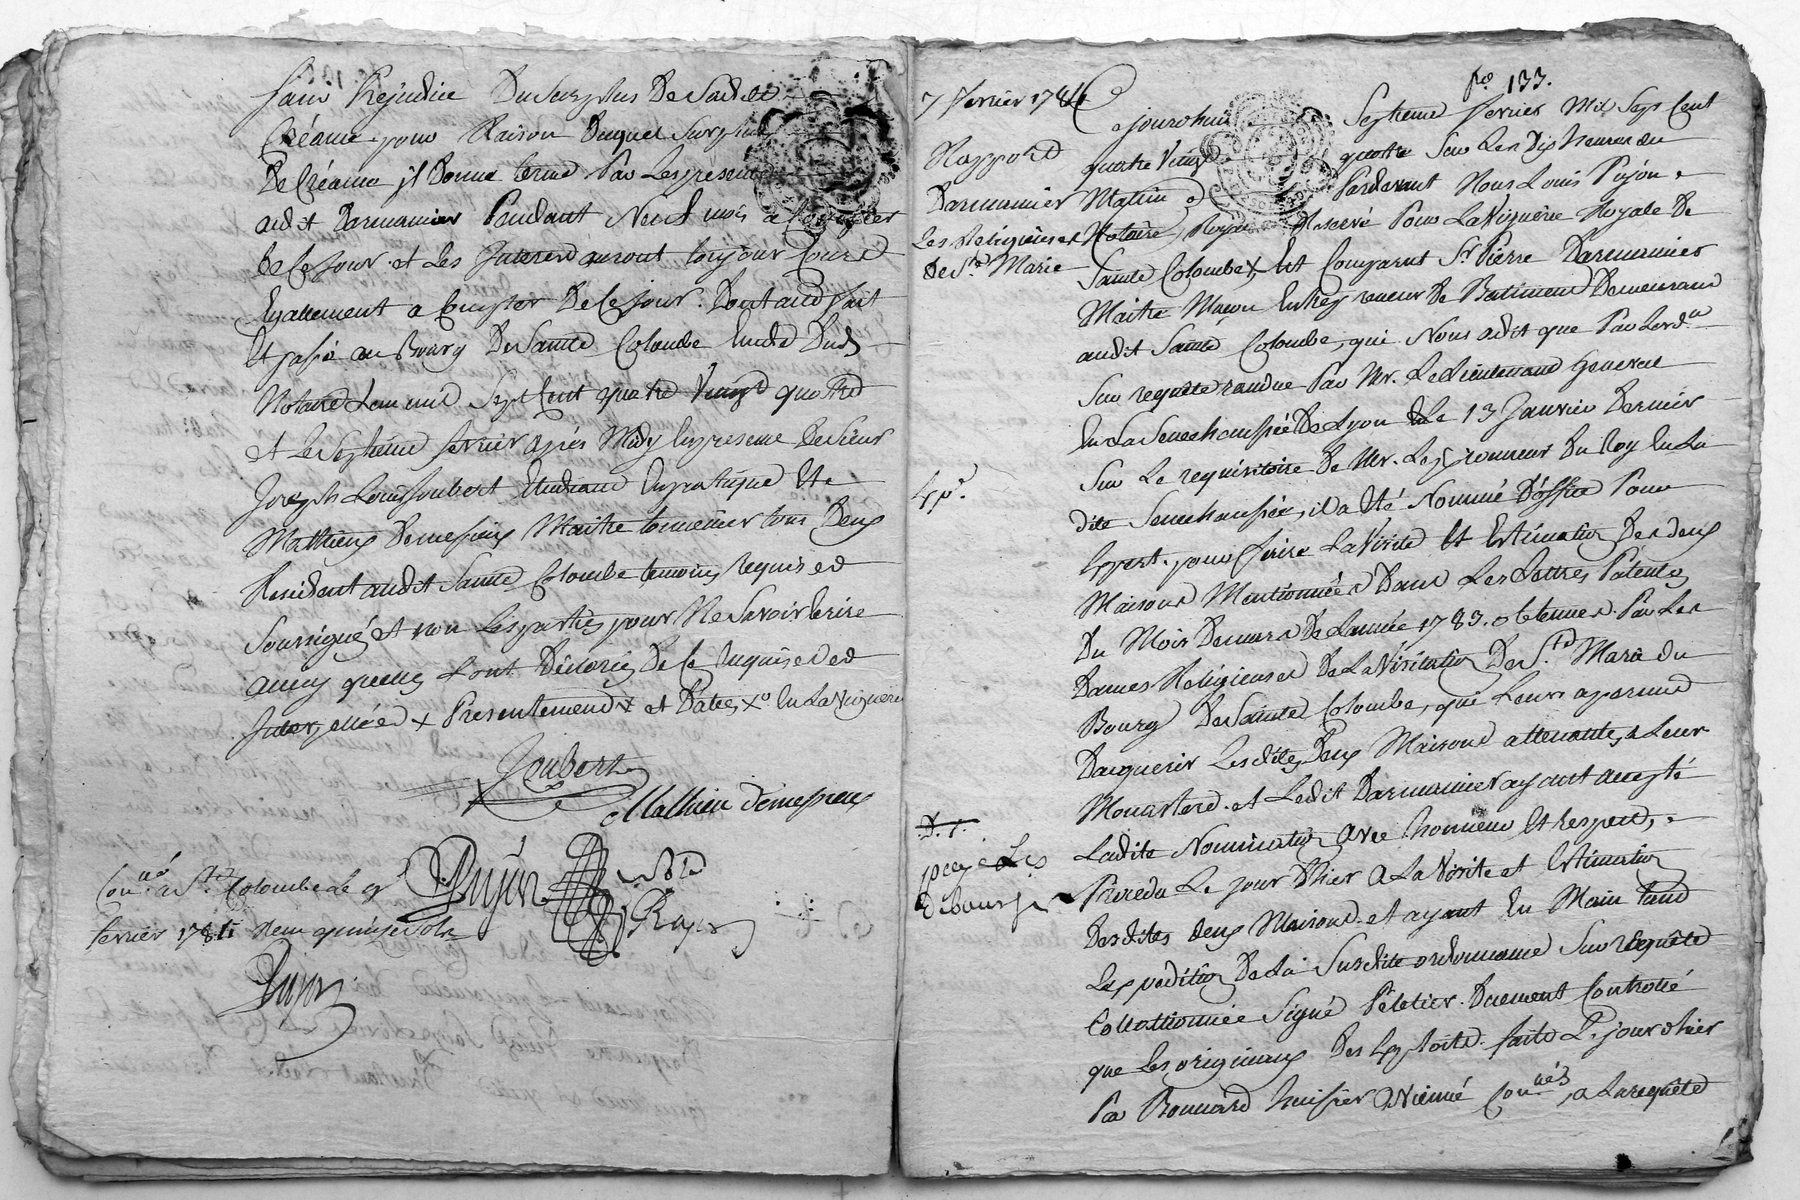 sans Préjudice Du surplus De sadite
Créance pour Raison Duquel surplus
De Créance il Donne terme Par Les presentes
audit Darmanier Pendant Neuf mois a Compter
de Ce jour et Les Interets auront toujour Cours
Egallement a Compter De Ce jour. Dont acte fait
Et passé au Bourg De Sainte Colombe Etude Dud.
Notaire L'an mil sept Cent quatre Vingt quattre
et Le septieme fevrier après Midy En presence De sieur
Joseph Louis Joubert Etudiant En pratique Et
Mathieux Demespieux Maitre tonnelier tous Deux
Residant audit Sainte Colombe temoins requis et
soussigné et non Les parties pour Ne savoir Ecrire
ainsy quelles L'ont Déclarés De Ce Enquises et
Interpellées x Presentement x et Dates x En La Viguerie
Joubert
Mathieu Demespieux
Pujon Nore Royal
Con.né a Ste Colombe Le 9
fevrier 1784 quinze sols
Pujon
fo 133.
7 fevrier 1784
Rapport
Darmanier
Les Religieuses
De Ste Marie
Exp.
D. 1.
payé Les
debourses
ajourdhui septieme fevrier Mil Sept Cent
quatre Vingt quattre Sur Les Dix heures du
Matin Pardevant Nous Louis Pujon
Notaire Royal Reservé Pour La Viguerie Royale De
Sainte Colombe, Est Comparut Sr Pierre Darmanier
Maitre Maçon Entrepreneur De Batiment Demeurant
audit Sainte Colombe, qui Nous adit que Par Lordce
Sur requette randue Par Mr. Le Lieutenant General
En La Senechaussée De Lyon Le 13 Janvier Dernier
Sur Le requisitoire De Mr. Le Procureur Du Roy En La
dite Senechaussée, il a Eté Nommé D'office Pour
Expert pour faire La Visite Et Estimation Des deux
Maisons Mentionnées Dans Les Lettres Patentes
Du Mois De mars De Lannée 1783. obtenues Par Les
Dames Religieuses De La Visitation De Ste Marie du
Bourg De Sainte Colombe, qui Leurs apermis
Dacquerir Lesdites Deux Maisons attenantes a Leur
Monastere. et Ledit Darmanier ayant accepté
Ladite Nomination avec honneur Et respect,
Proceda Le jour D'hier a La Visite et Estimation
Desdites deux Maisons. et ayant En Main tant
L'expedition De La Susdite ordonnance Sur Requête
Collationnée Signé Peletier Duement Controllé
que Les originaux Des Exploits faits Le jour d'hier
Par Bonnard huissier a Vienne Con.nés, a La requête